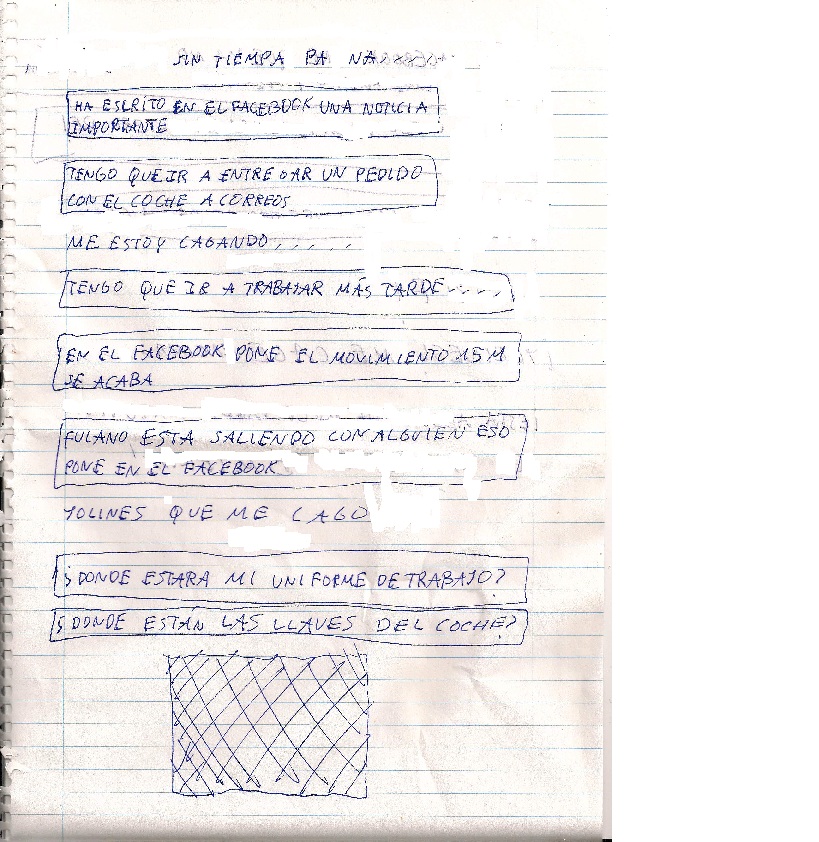 SIN TIEMPA PA NA
HA ESCRITO EN EL FACEBOOK UNA NOTICIA
IMPORTANTE
TENGO QUE IR A ENTREGAR UN PEDIDO
CON EL COCHE A CORREOS
ME ESTOY CAGANDO.....
TENGO QUE IR A TRABAJAR MÁS TARDE.....
EN EL FACEBOOK PONE EL MOVIMIENTO 15M
SE ACABA
FULANO ESTA SALIENDO CON ALGUIEN ESO
PONE EN EL FACEBOOK
JOLINES QUE ME CAGO
¿DONDE ESTARA MI UNIFORME DE TRABAJO?
¿DONDE ESTÁN LAS LLAVES DEL COCHE?